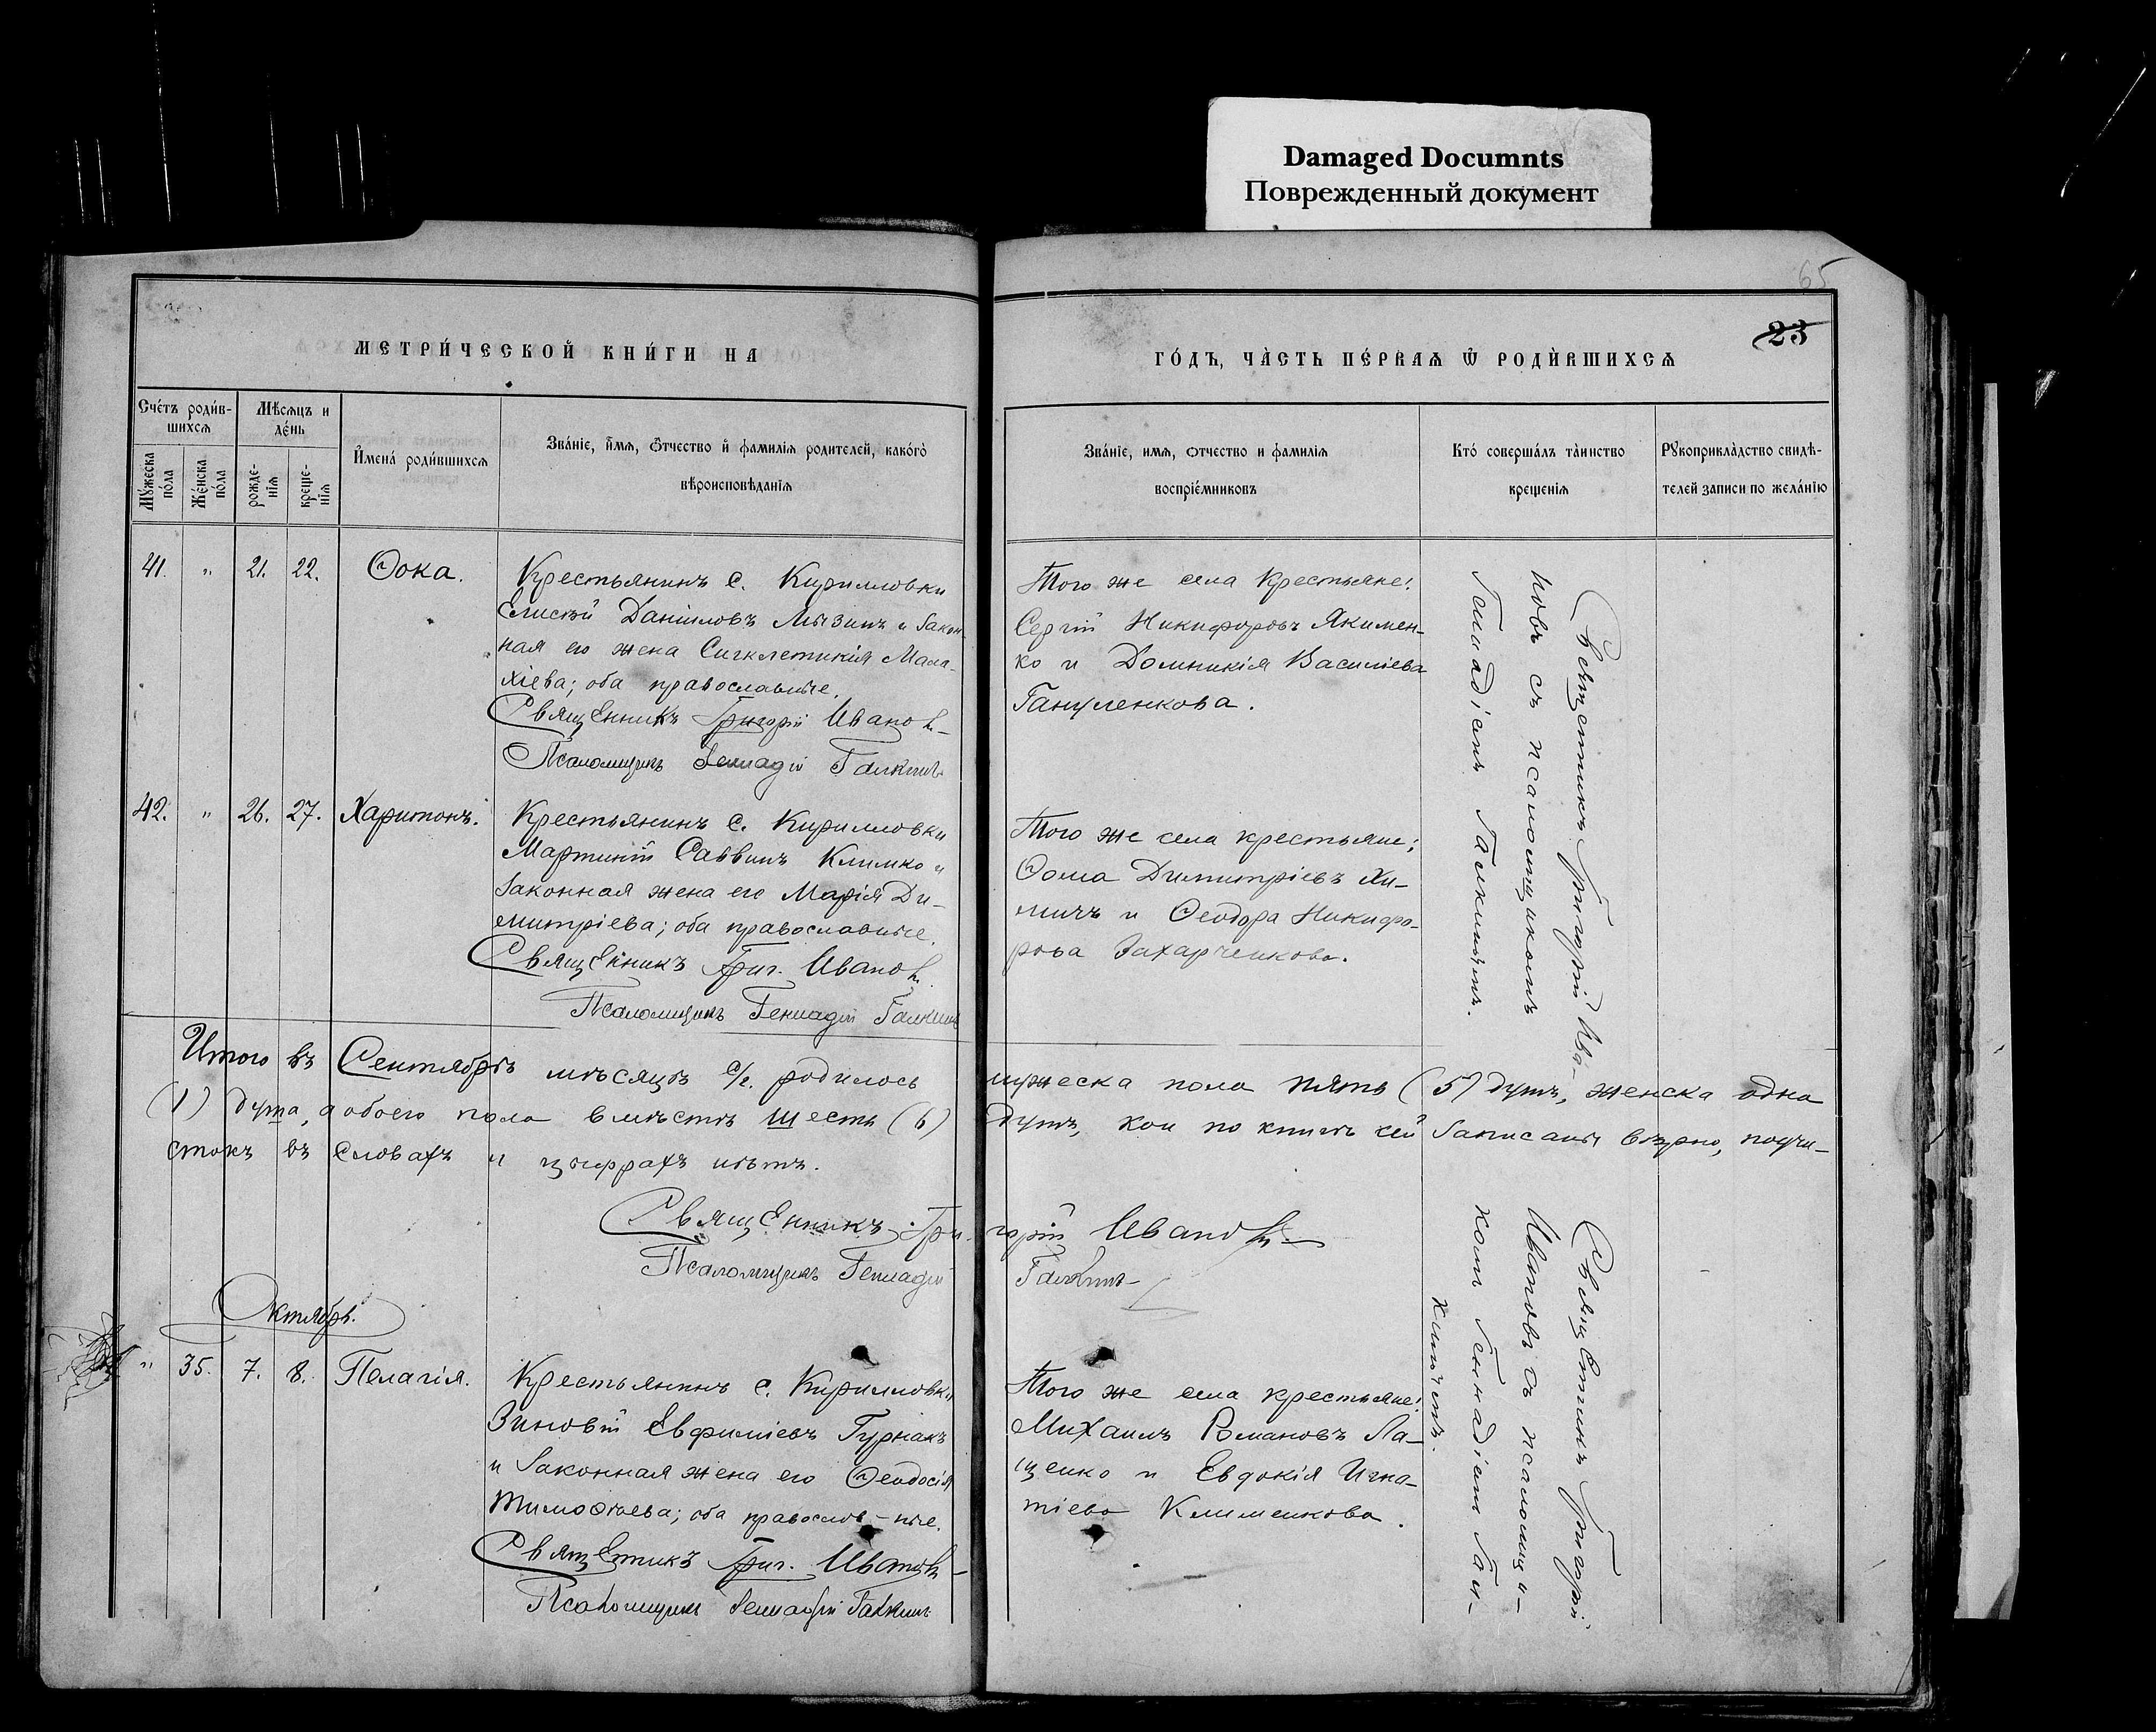 Damaged Documnts
Поврежденный документ
65
23
МЕТРИ́ЧЕСКОЙ КНИ́ГИ НА
ГО́ДЪ, ЧА̀СТЬ ПЕ́РВАѦ Ѿ РОДЍВШИХСѦ
Сче́тъ роди́в-
шихсѧ
Мѣ́сѧцъ и
де́нь
Мꙋ́жеска
по́ла
Же́нска
по́ла
рожде-
нїѧ
креще-
нїѧ
И҆мена́ роди́вшихсѧ
Зва́нїе, и҆́мѧ, ѻ҆́тчество и҆ фамилїѧ родителей, како́гѡ
вѣроисповѣ́данїѧ
Зва́нїе, имѧ, ѻтчество и фамилїѧ
воспрїе́мниковъ
Кто̀ соверша́лъ та̀инство
крещенїѧ
Рꙋкоприкла̀дство свидѣ́-
телей записи по жела́нїю
41. " 21. 22. Ѳока.
Крестьянинъ с. Кирилловки
Елисѣй Даніиловъ Мызинъ и закон-
ная его жена Сигклетикія Мала-
хіева; оба православные.
Священникъ Григорій Ивановъ
Псаломщикъ Геннадій Галкинъ
Того же села крестьяне:
Сергій Никифоровъ Якимен-
ко и Домникія Василіева
Гануленкова.
Священникъ Григорій Ива-
новъ съ псаломщикомъ
Геннадіемъ Галкинымъ.
42. " 26. 27. Харитонъ.
Крестьянинъ с. Кирилловки
Мартиній Саввинъ Климко и
законная жена его Марія Ди-
митріева; оба православные.
Священникъ Григ. Ивановъ
Псаломщикъ Геннадій Галкинъ
Того же села крестьяне:
Ѳома Димитріевъ Хи-
мичъ и Ѳеодора Никифо-
рова Захарченкова.
Итого въ Сентябрѣ мѣсяцѣ с/г. родилось мужеска пола пять (5) душъ, женска одна
(1) душа, а обоего пола вмѣстѣ шесть (6) душъ, кои по книгѣ сей записаны вѣрно, подчи-
стокъ въ словахъ и цыфрахъ нѣтъ.
Священникъ Григорій Ивановъ
Псаломщикъ Геннадій Галкинъ
Октябрь.
" 35. 7. 8. Пелагія.
Крестьянинъ с. Кирилловки
Зиновій Евфиміевъ Гурнакъ
и законная жена его Ѳеодосія
Тимоѳеева; оба православ-ные.
Священникъ Григ. Ивановъ
Псаломщикъ Геннадій Галкинъ
Того же села крестьяне:
Михаилъ Романовъ Ла-
щенко и Евдокія Игна-
тіева Клименкова.
Священникъ Григорій
Ивановъ съ псаломщи-
комъ Геннадіемъ Гал-
кинымъ.